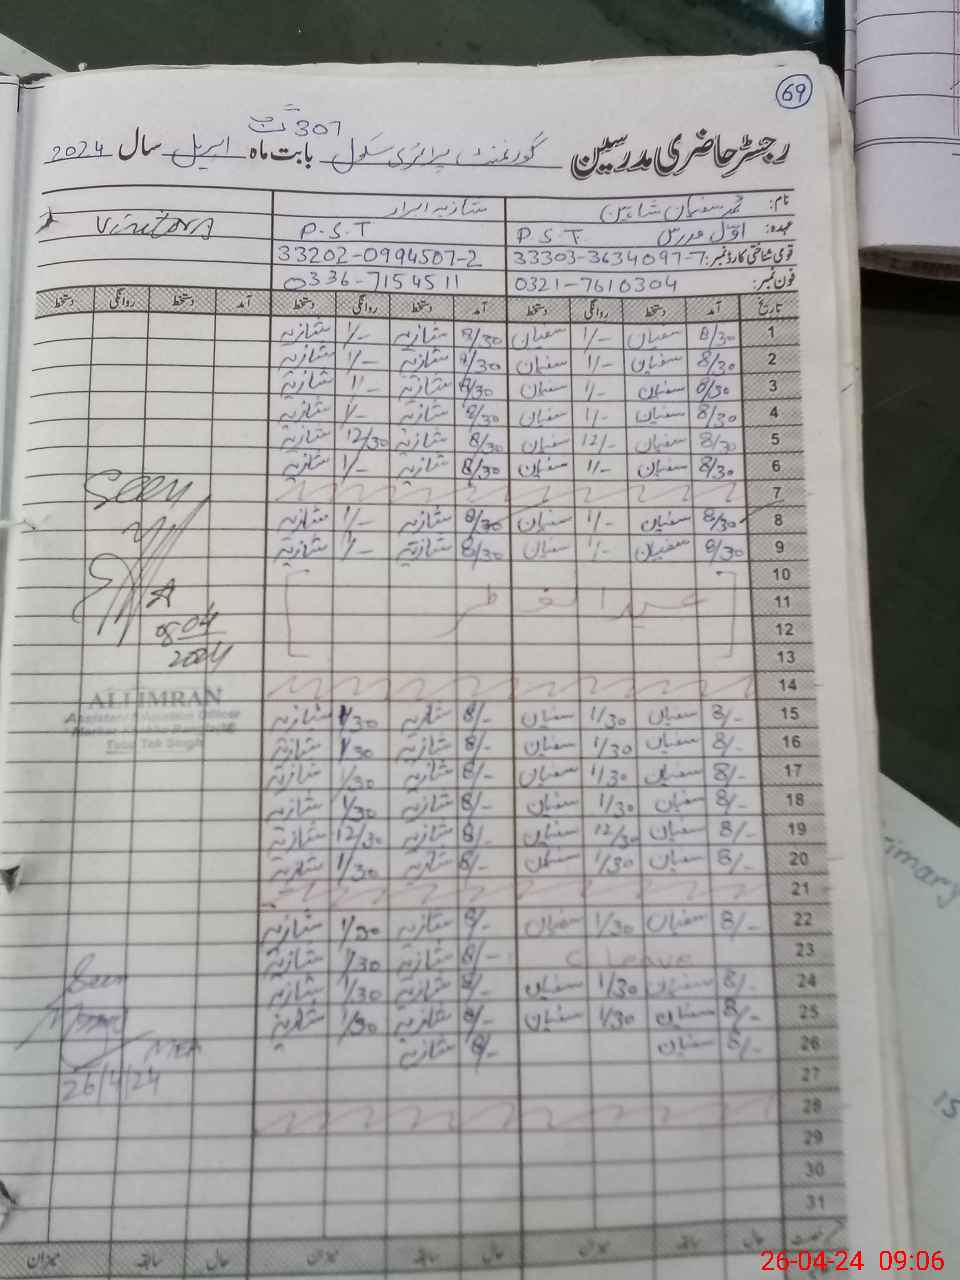 69
307
رجسٹر حاضری مدرسین گورنمنٹ پرائمری سکول بابت ماہ اپریل سال 2024
نام: محمد سفیان شاہین شازیہ ابرار
عہدہ: اوّل مدرس P.S.T P.S.T Visitors
قومی شناختی کارڈ نمبر: 33303-3634097-7 33202-0994507-2
فون نمبر: 0321-7610304 0336-7154511
تاریخ آمد دستخط روانگی دستخط آمد دستخط روانگی دستخط آمد دستخط روانگی دستخط
1 8/30 سفیان 1/- سفیان 8/30 شازیہ 1/- شازیہ
2 8/30 سفیان 1/- سفیان 8/30 شازیہ 1/- شازیہ
3 8/30 سفیان 1/- سفیان 8/30 شازیہ 1/- شازیہ
4 8/30 سفیان 1/- سفیان 8/30 شازیہ 1/- شازیہ
5 8/30 سفیان 12/- سفیان 8/30 شازیہ 12/30 شازیہ
6 8/30 سفیان 1/- سفیان 8/30 شازیہ 1/- شازیہ
7
8 8/30 سفیان 1/- سفیان 8/30 شازیہ 1/- شازیہ
9 8/30 سفیان 1/- سفیان 8/30 شازیہ 1/- شازیہ
10
11 عید الفطر
12
13
14
15 8/- سفیان 1/30 سفیان 8/- شازیہ 1/30 شازیہ
16 8/- سفیان 1/30 سفیان 8/- شازیہ 1/30 شازیہ
17 8/- سفیان 1/30 سفیان 8/- شازیہ 1/30 شازیہ
18 8/- سفیان 1/30 سفیان 8/- شازیہ 1/30 شازیہ
19 8/- سفیان 12/30 سفیان 8/- شازیہ 12/30 شازیہ
20 8/- سفیان 1/30 سفیان 8/- شازیہ 1/30 شازیہ
21
22 8/- سفیان 1/30 سفیان 8/- شازیہ 1/30 شازیہ
23 C Leave 8/- شازیہ 1/30 شازیہ
24 8/- سفیان 1/30 سفیان 8/- شازیہ 1/30 شازیہ
25 8/- سفیان 1/30 سفیان 8/- شازیہ 1/30 شازیہ
26 8/- سفیان 8/- شازیہ
27
28
29
30
31
حال سابقہ میزان حال سابقہ میزان حال سابقہ میزان
Seen
08 04
2024
ALI IMRAN
Assistant Education Officer
Toba Tek Singh
Seen
MEA
26/4/24
imary
15
26-04-24 09:06